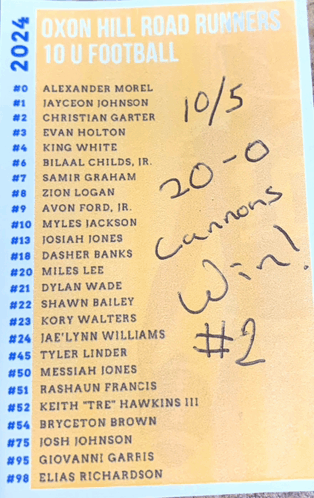 2024
OXON HILL ROAD RUNNERS
10 U FOOTBALL
#0 ALEXANDER MOREL
#1 JAYCEON JOHNSON
#2 CHRISTIAN GARTER
#3 EVAN HOLTON
#4 KING WHITE
#6 BILAAL CHILDS, JR.
#7 SAMIR GRAHAM
#8 ZION LOGAN
#9 AVON FORD, JR.
#10 MYLES JACKSON
#13 JOSIAH JONES
#18 DASHER BANKS
#20 MILES LEE
#21 DYLAN WADE
#22 SHAWN BAILEY
#23 KORY WALTERS
#24 JAE'LYNN WILLIAMS
#45 TYLER LINDER
#50 MESSIAH JONES
#51 RASHAUN FRANCIS
#52 KEITH "TRE" HAWKINS III
#54 BRYCETON BROWN
#75 JOSH JOHNSON
#95 GIOVANNI GARRIS
#98 ELIAS RICHARDSON
10/5
20-0
Cannons
Win!
#2